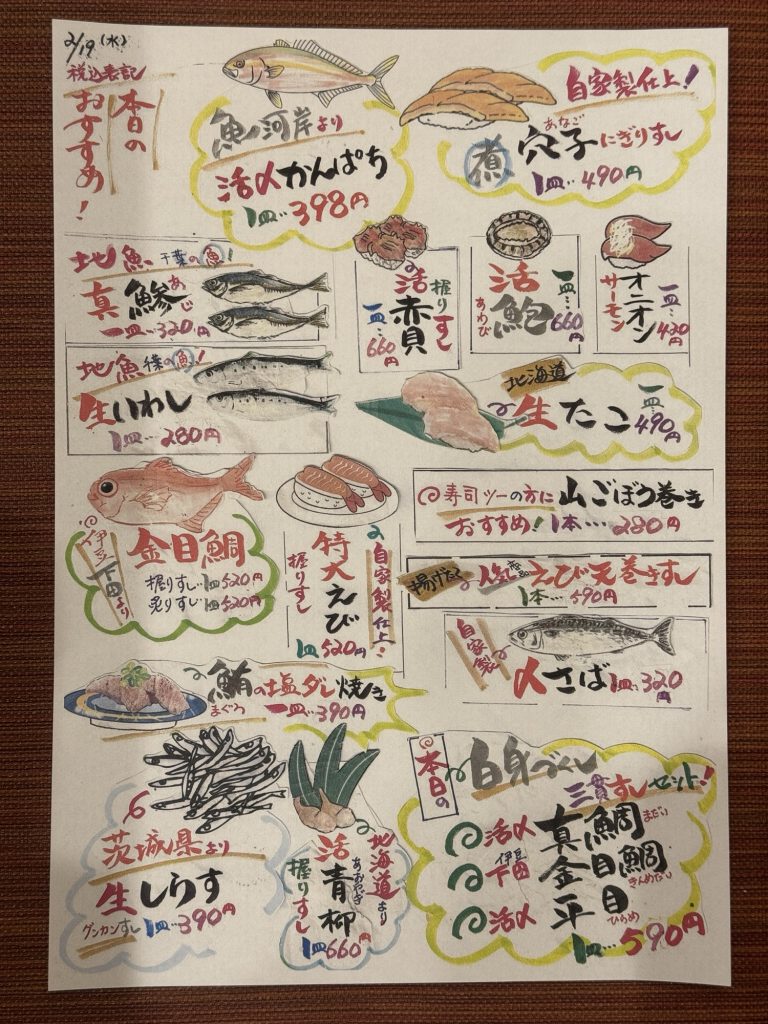 2/19(水)
税込表記
本日の
おすすめ!
魚河岸より
活〆かんぱち
1皿…398円
自家製仕上!
煮 穴子にぎりすし
あなご
1皿…490円
地魚 千葉の魚!
真鯵
あじ
一皿…320円
活赤貝
握りすし
一皿…660円
活鮑
あわび
一皿…660円
オニオン
サーモン
一皿…420円
地魚 千葉の魚!
生いわし
1皿…280円
北海道
生たこ
一皿…490円
寿司ツーの方に 山ごぼう巻き
おすすめ! 1本…280円
金目鯛
伊豆
下田より
握りすし…1皿520円
炙りすし…1皿520円
自家製仕上!
特大えび
握りすし
1皿520円
揚げたて 人気 えび天巻きすし
1本…590円
自家製
〆さば 1皿…320円
鮪の塩ダレ焼き
まぐろ 一皿…390円
茨城県より
生しらす
グンカンすし 1皿…390円
北海道より
活青柳
あおやぎ
握りすし
1皿660円
本日の
白身づくし
三貫すしセット!
活〆 真鯛 まだい
伊豆
下田 金目鯛 きんめだい
活〆 平目 ひらめ
1皿…590円